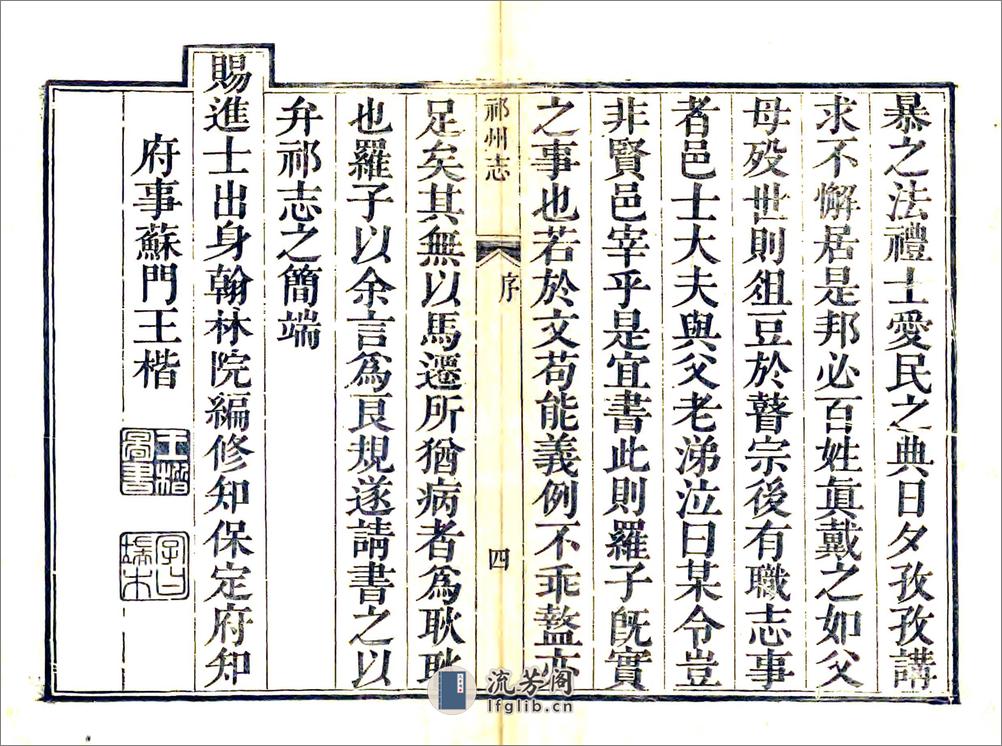 暴之法禮士愛民之典日夕孜孜講
求不懈居是邦必百姓眞戴之如父
母歿世則俎豆於瞽宗後有職志事
者邑士大夫與父老涕泣曰某令豈
非賢邑宰乎是宜書此則羅子旣實
之事也若於文苟能義例不乖盭亦
祁州志
序
四
足矣其無以馬遷所猶病者為耿耿
也羅子以余言為良規遂請書之以
弁祁志之簡端
賜進士出身翰林院編修知保定府知
府事蘇門王楷
王楷圖書
字曰端木
流芳阁
lfglib.cn